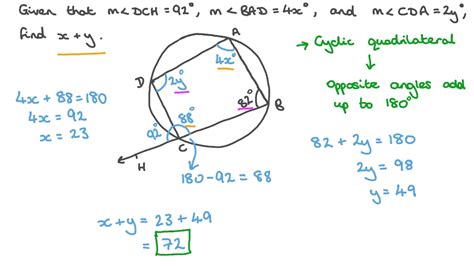 Given that m∠DCH = 92°, m∠BAD = 4x°, and m∠CDA = 2y°,
find x + y.
→ Cyclic quadrilateral
↓
Opposite angles add
up to 180°
A
4x°
D
2y°
82°
B
88°
92°
C
H
180 - 92 = 88
4x + 88 = 180
4x = 92
x = 23
82 + 2y = 180
2y = 98
y = 49
x + y = 23 + 49
= 72